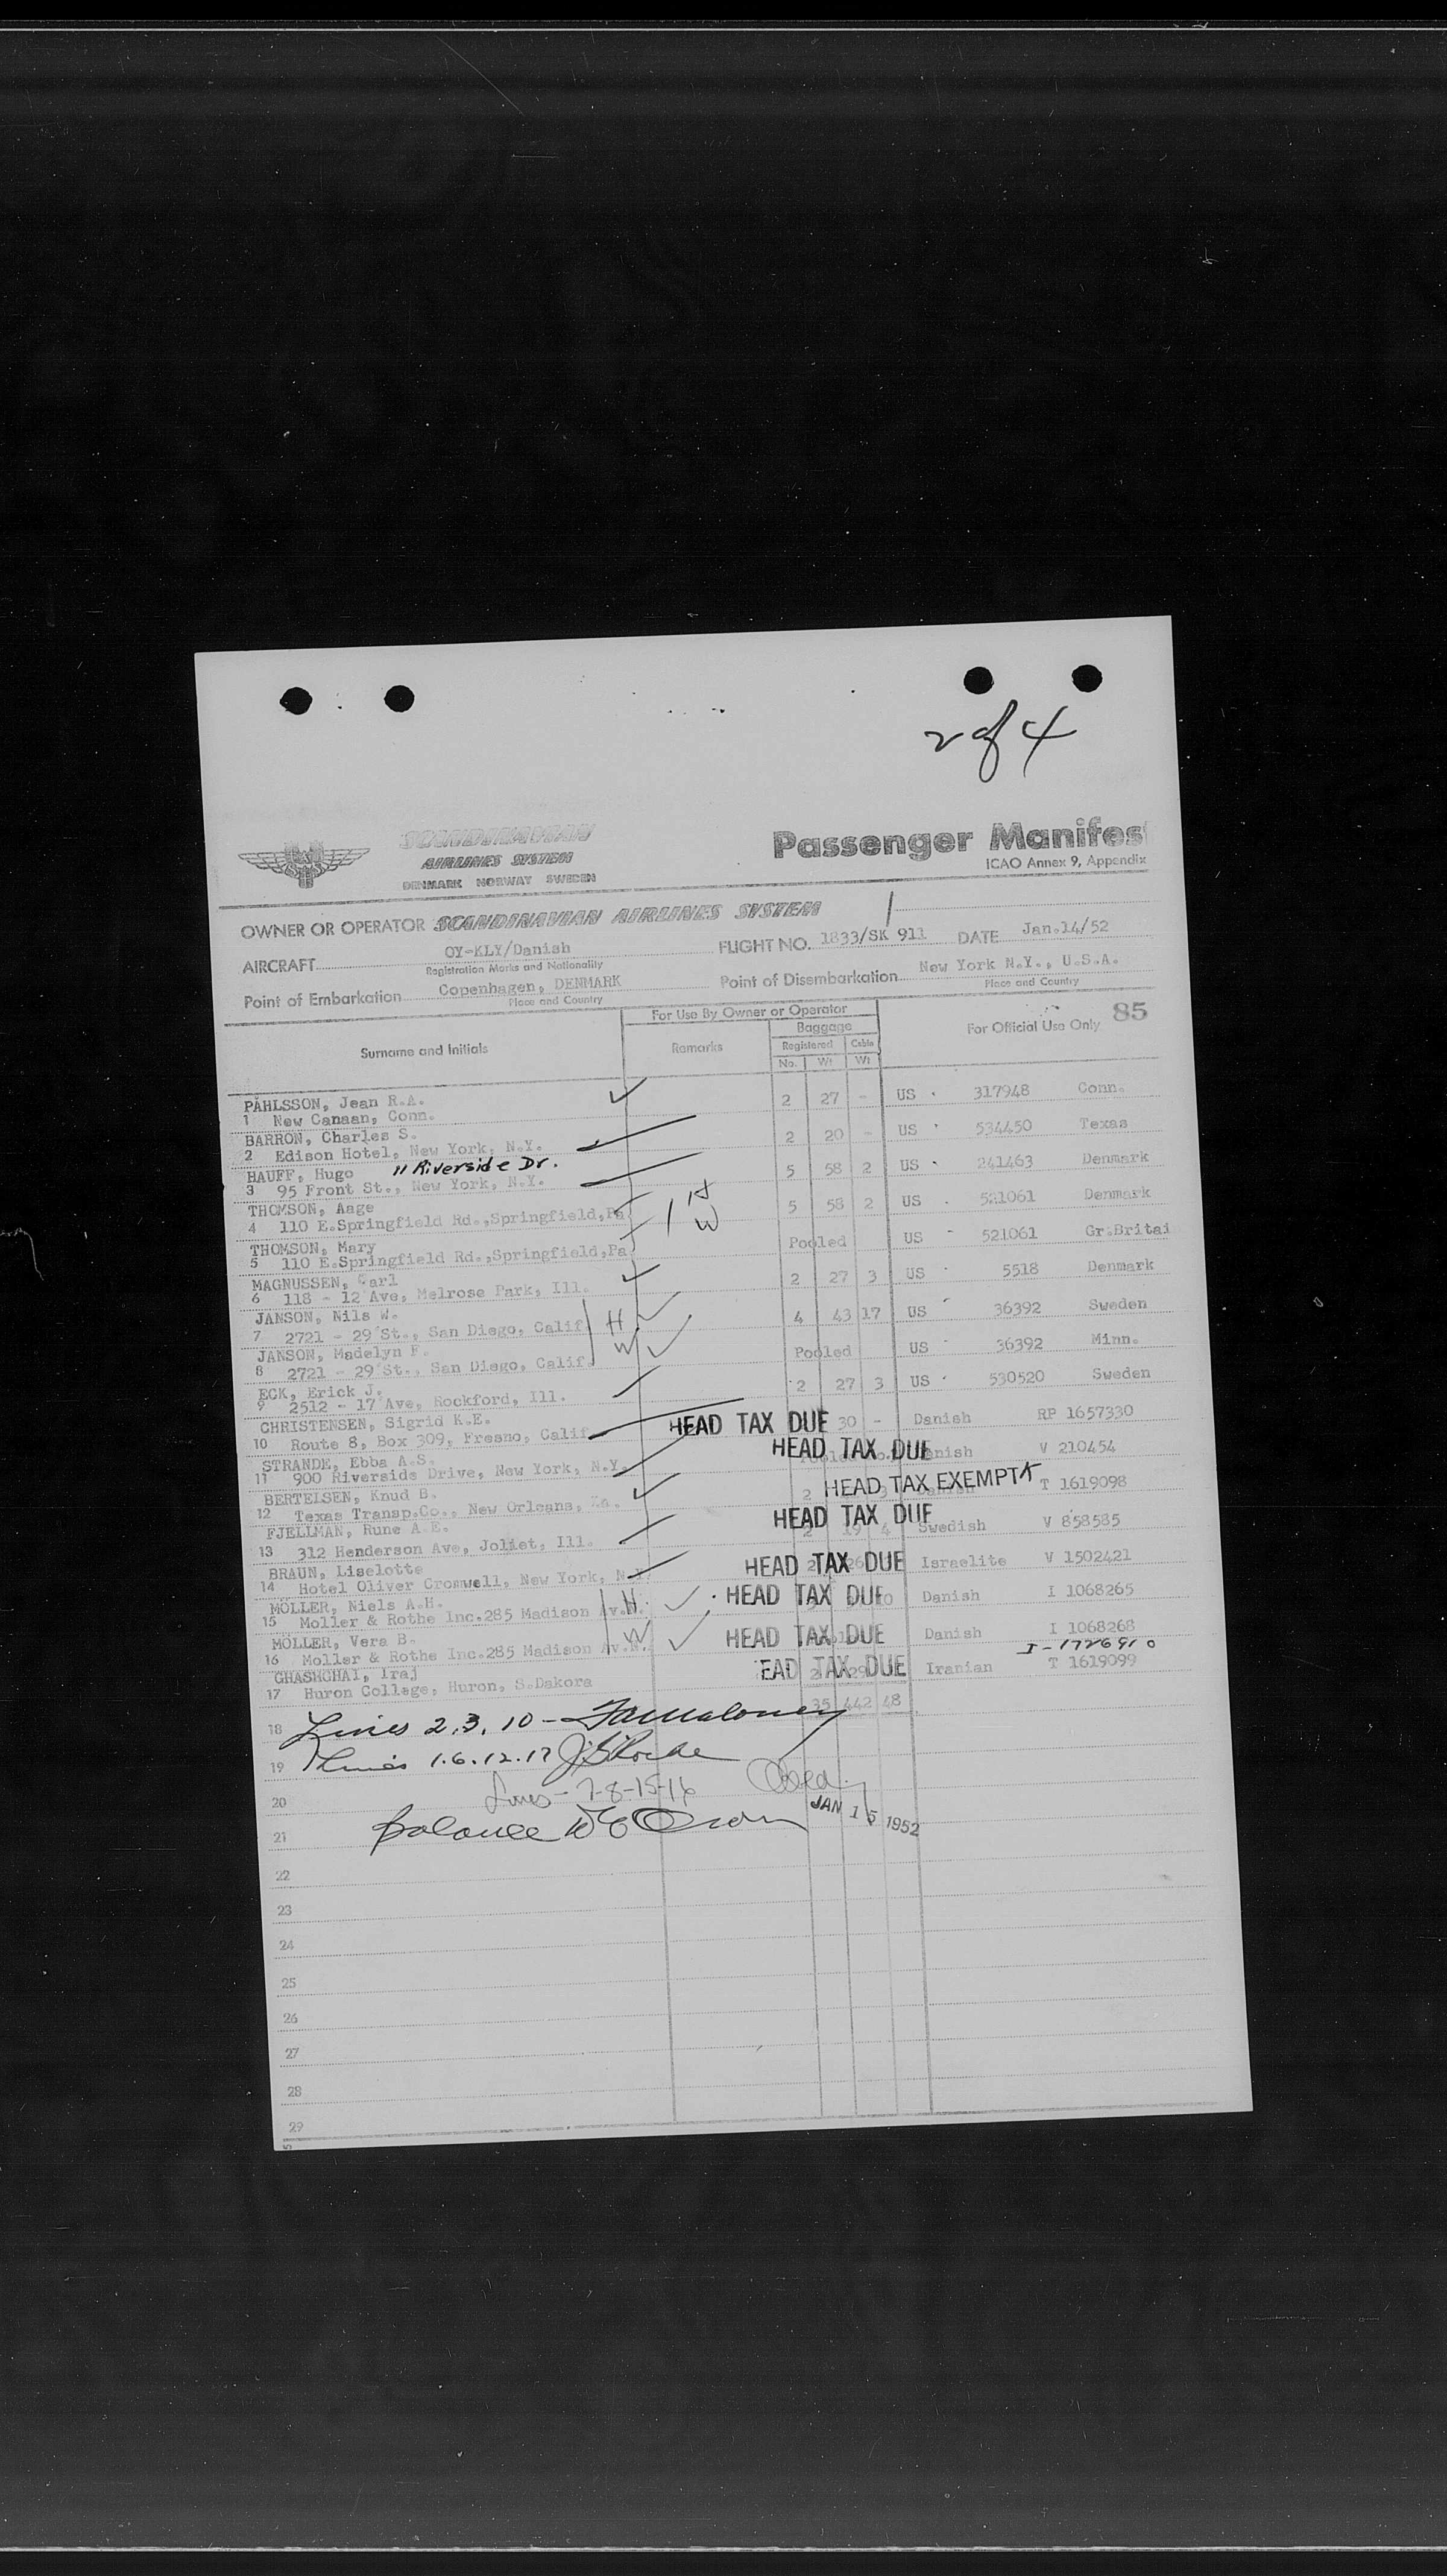 2 of 4
SCANDINAVIAN
AIRLINES SYSTEM
DENMARK NORWAY SWEDEN
Passenger Manifes
ICAO Annex 9, Appendix
OWNER OR OPERATOR SCANDINAVIAN AIRLINES SYSTEM
AIRCRAFT OY-KLY/Danish FLIGHT NO. 1833/SK 911 DATE Jan.14/52
Registration Marks and Nationality
Point of Embarkation Copenhagen, DENMARK Point of Disembarkation New York N.Y., U.S.A.
Place and Country Place and Country
For Use By Owner or Operator For Official Use Only 85
Surname and Initials Remarks Baggage
Registered Cabin
No. Wt Wt
PÅHLSSON, Jean R.A.
1 New Canaan, Conn. 2 27 - US 317948 Conn.
BARRON, Charles S.
2 Edison Hotel, New York, N.Y. 2 20 - US 534450 Texas
HAUFF, Hugo 11 Riverside Dr.
3 95 Front St., New York, N.Y. 5 58 2 US 241463 Denmark
THOMSON, Aage
4 110 E.Springfield Rd.,Springfield,Pa H 5 58 2 US 521061 Denmark
THOMSON, Mary W
5 110 E.Springfield Rd.,Springfield,Pa Pooled US 521061 Gr.Britai
MAGNUSSEN, Carl
6 118 - 12 Ave, Melrose Park, Ill. 2 27 3 US 5518 Denmark
JANSON, Nils W.
7 2721 - 29 St., San Diego, Calif. H 4 43 17 US 36392 Sweden
JANSON, Madelyn F.
8 2721 - 29 St., San Diego, Calif. W Pooled US 36392 Minn.
ECK, Erick J.
9 2512 - 17 Ave, Rockford, Ill. 2 27 3 US 530520 Sweden
CHRISTENSEN, Sigrid K.E.
10 Route 8, Box 309, Fresno, Calif HEAD TAX DUE 30 - Danish RP 1657330
STRANDE, Ebba A.S.
11 900 Riverside Drive, New York, N.Y. HEAD TAX DUE V 210454
BERTELSEN, Knud B.
12 Texas Transp.Co., New Orleans, 2 HEAD TAX EXEMPT T 1619098
FJELLMAN, Rune A.E.
13 312 Henderson Ave, Joliet, Ill. HEAD TAX DUE 2 19 4 Swedish V 858585
BRAUN, Liselotte
14 Hotel Oliver Cromwell, New York, N.Y. HEAD TAX DUE Israelite V 1502421
MÖLLER, Niels A.H.
15 Moller & Rothe Inc.285 Madison Av.N. H HEAD TAX DUE Danish I 1068265
MÖLLER, Vera B.
16 Moller & Rothe Inc.285 Madison Av.N. W HEAD TAX DUE Danish I 1068268
I-1726910
GHASHGHAI, Iraj
17 Huron College, Huron, S.Dakora EAD TAX DUE 2 29 Iranian T 1619099
35 442 48
18 Lines 2, 3, 10 -
19 Lines 1.6.12.17
20 Lines - 7-8-15-16
JAN 15 1952
21 Balance
22
23
24
25
26
27
28
29